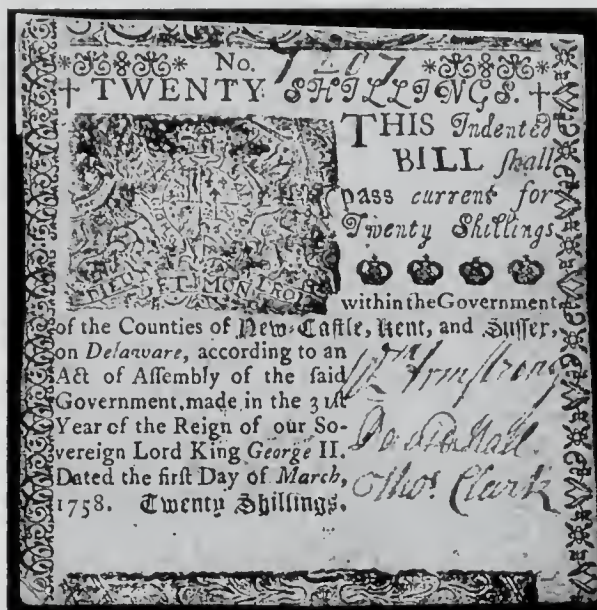 No. 7207
TWENTY SHILLINGS.
THIS Indented
BILL ſhall
paſs current for
Twenty Shillings
DIEU ET MON DROI
within the Government
of the Counties of New-Caſtle, Kent, and Suſſex,
on Delaware, according to an
Act of Aſſembly of the ſaid
Government, made in the 31ſt
Year of the Reign of our So-
vereign Lord King George II.
Dated the firſt Day of March,
1758. Twenty Shillings.
Wm Armstrong
David Hall.
Thos Clark